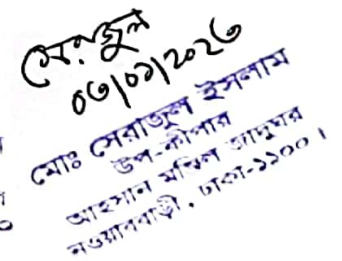 সেরাজুল
০৩/০১/২০২৩
মোঃ সেরাজুল ইসলাম
উপ-কীপার
আহসান মঞ্জিল জাদুঘর
নওয়াববাড়ী, ঢাকা-১১০০।